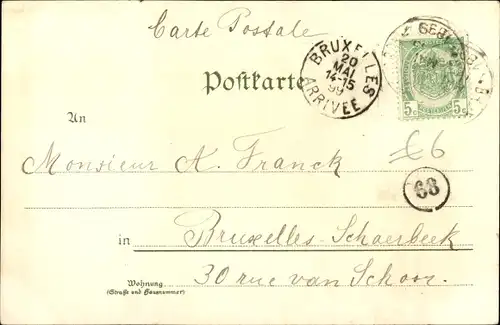 Carte Postale
BRUXELLES
20
MAI
14-15
99
ARRIVEE
Postkarte
5c 5c
An
£6
Monsieur A. Franck
68
in Bruxelles-Schaerbeek
Wohnung
(Straße und Hausnummer)
30 rue van Schoor.